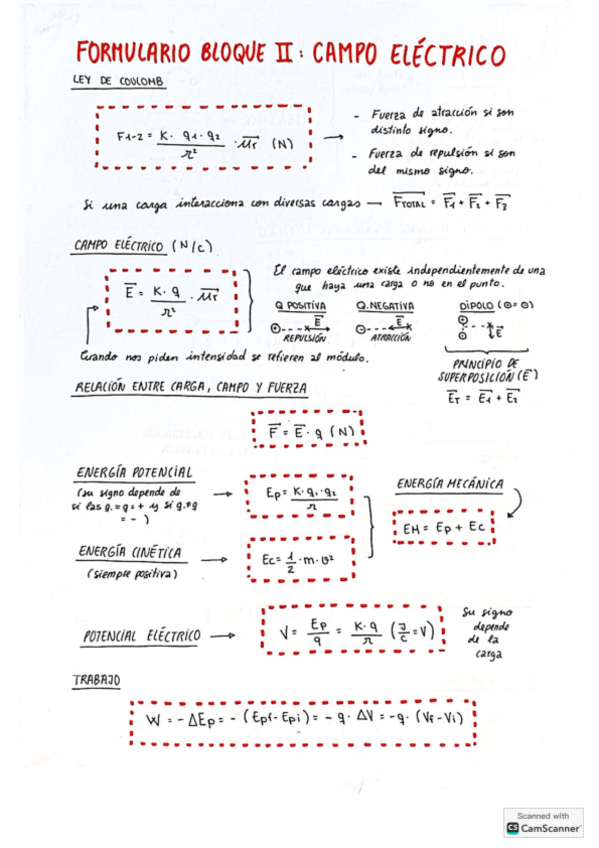 FORMULARIO BLOQUE II: CAMPO ELÉCTRICO
LEY DE COULOMB
F1-2 = K · q1 · q2 / r² · ur (N)
- Fuerza de atracción si son
distinto signo.
- Fuerza de repulsión si son
del mismo signo.
Si una carga interacciona con diversas cargas → FTOTAL = F1 + F2 + F3
CAMPO ELÉCTRICO (N/C)
E = K · q / r² · ur
El campo eléctrico existe independientemente de una
que haya una carga o no en el punto.
Q POSITIVA
Q. NEGATIVA
DIPOLO (⊕=⊖)
E
REPULSIÓN
E
ATRACCIÓN
E
Cuando nos piden intensidad se refieren al módulo.
PRINCIPIO DE
SUPERPOSICIÓN (E)
ET = E1 + E2
RELACIÓN ENTRE CARGA, CAMPO Y FUERZA
F = E · q (N)
ENERGÍA POTENCIAL
(su signo depende de
si las q. = q = + y si q. ≠ q
= - )
Ep = K · q1 · q2 / r
ENERGÍA MECÁNICA
EM = Ep + Ec
ENERGÍA CINÉTICA
(siempre positiva)
Ec = 1/2 · m · v²
POTENCIAL ELÉCTRICO →
V = Ep/q = K · q / r (J/C = V)
Su signo
depende
de la
carga
TRABAJO
W = - ΔEp = - (Epf - Epi) = - q · ΔV = -q · (Vf - Vi)
Scanned with
CS CamScanner